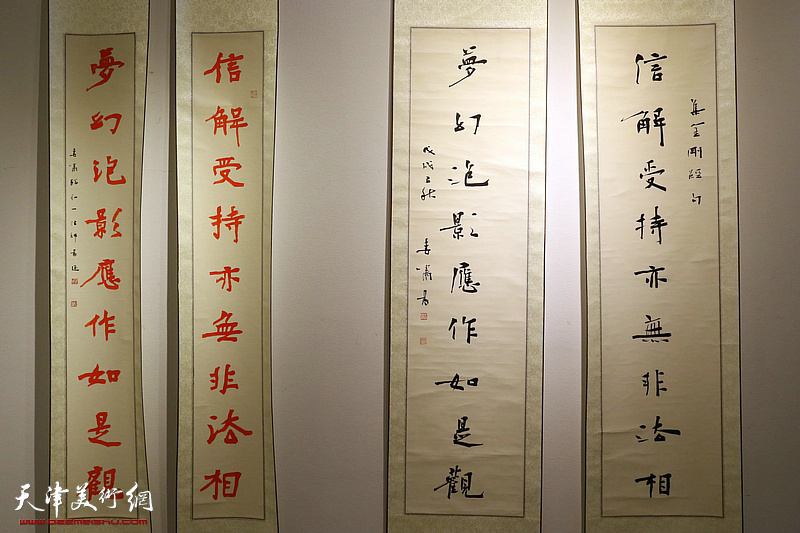 信解受持亦無非法相
夢幻泡影應作如是觀
集金剛經句
信解受持亦無非法相
夢幻泡影應作如是觀
戊戌之秋
天津美術網